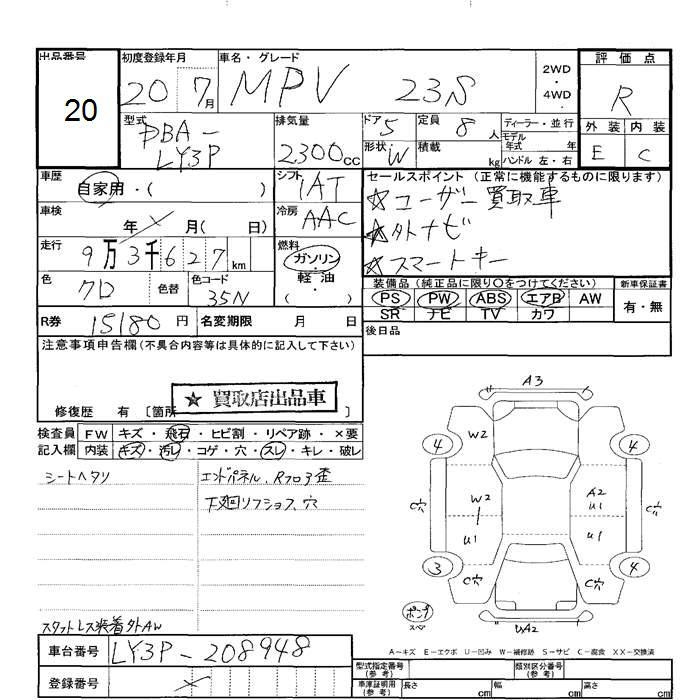 出品番号
20
初度登録年月
20 7月
車名・グレード
MPV 23S
2WD
4WD
評価点
R
外装 内装
E C
型式
DBA-
LY3P
排気量
2300cc
ドア 5
形状 W
定員 8 人
積載 kg
ディーラー・並行
モデル年式 年
ハンドル 左・右
車歴
自家用・( )
シフト
IAT
セールスポイント (正常に機能するものに限ります)
☆ユーザー買取車
☆外ナビ
☆スマートキー
車検
年 × 月( 日)
冷房
AAC
走行
9万3千627km
燃料
ガソリン・
軽・油
( )
色
クロ
色替
色コード
35N
装備品 (純正品に限り○をつけてください)
PS PW ABS エアB AW
SR ナビ TV カワ
新車保証書
有・無
R券 15180円
名変期限 月 日
後日品
注意事項申告欄(不具合内容等は具体的に記入して下さい)
☆ 買取店出品車
修復歴 有 [箇所 ]
検査員 FW キズ・飛石・ヒビ割・リペア跡・×要
記入欄 内装 キズ・汚レ・コゲ・穴・スレ・キレ・破レ
シートヘタリ
エンドパネル、Rフロア歪
下廻リフショフ、穴
スタットレス装着外AW
A3
4 W2 4
C穴 W2 A2 U1 C穴
U1 U1
3 C穴 C穴 4
ポンプ
スペア
UA2
A-キズ E-エクボ U-凹み W-補修跡 S-サビ C-腐食 XX-交換済
車台番号 LY3P-208948
登録番号 ×
型式指定番号
(参考)
類別区分番号
(参考)
車庫証明用
(参考)
長さ cm 幅 cm 高さ cm